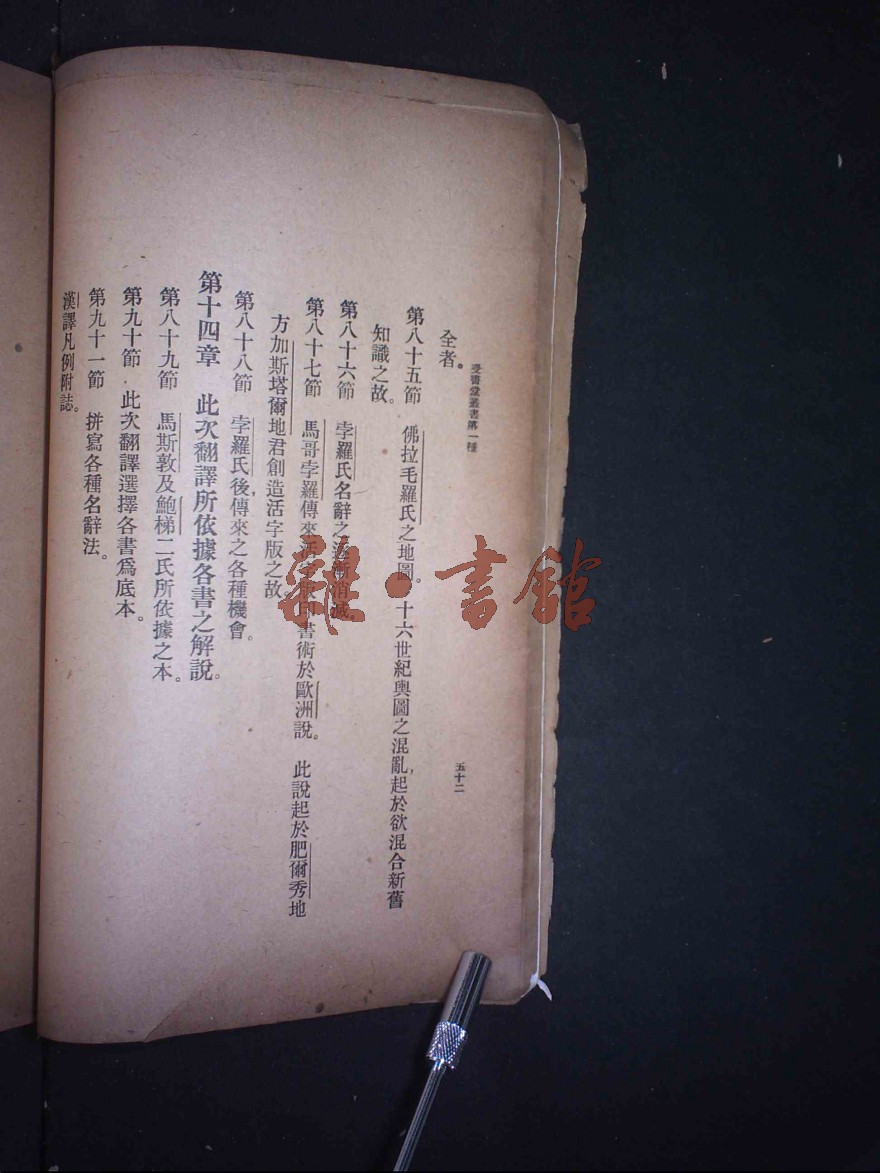 受書堂叢書第一種
五十二
全者。
第八十五節　佛拉毛羅氏之地圖。十六世紀輿圖之混亂，起於欲混合新舊
知識之故。
第八十六節　孛羅氏名辭之逐漸消滅。
第八十七節　馬哥孛羅傳來活字版印書術於歐洲說。　此說起於肥爾秀地
方加斯塔爾地君創造活字版之故。
第八十八節　孛羅氏後，傳來之各種機會。
第十四章　此次翻譯所依據各書之解說。
第八十九節　馬斯敦及鮑梯二氏所依據之本。
第九十節　此次翻譯選擇各書爲底本。
第九十一節　拼寫各種名辭法。
漢譯凡例附誌。
雜·書館